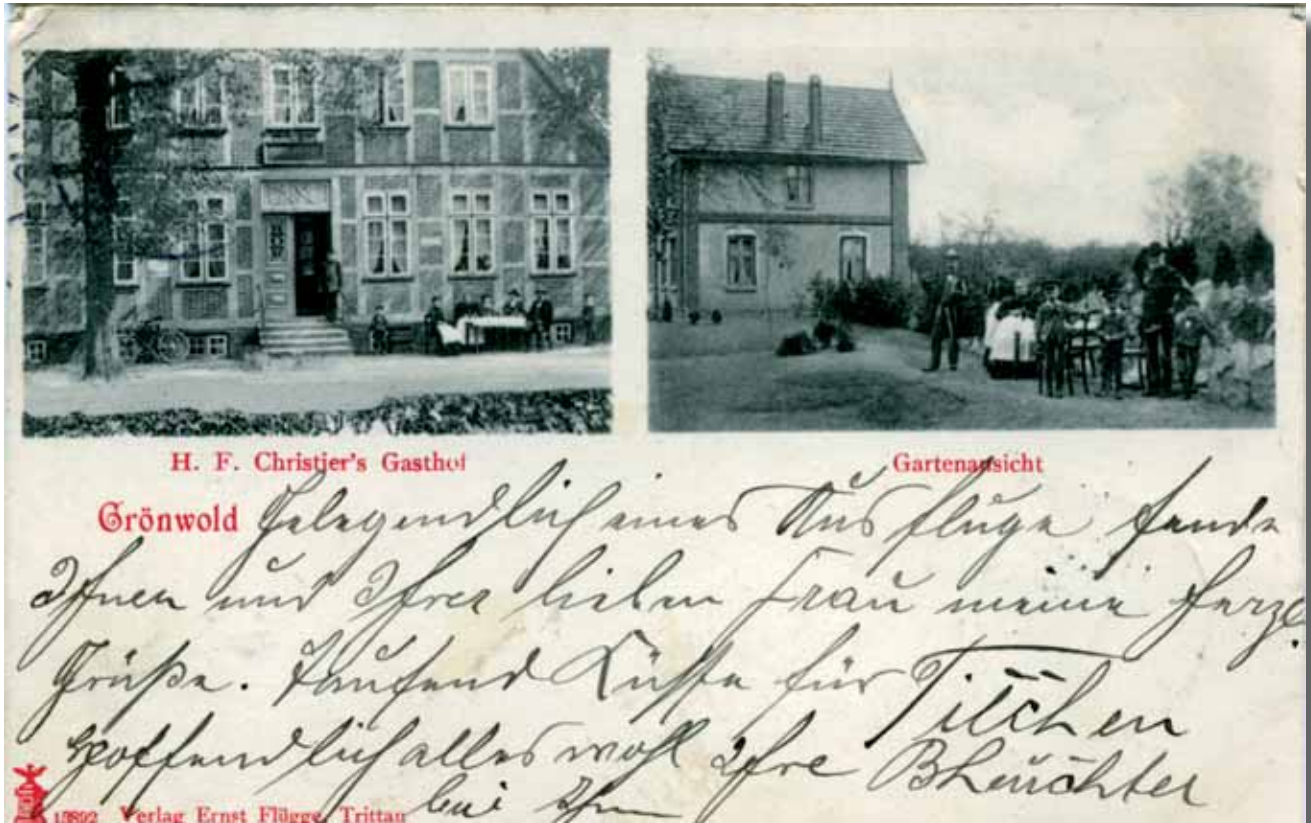 H. F. Christier's Gasthof
Gartenansicht
Grönwold
Gelegendlich eines Ausfluge sende
Ihnen und Ihrer lieben Frau meine herzl.
Grüße. Tausend Küsse für Tilchen
Hoffendlich alles wohl Ihre
bei Ihn
13892 Verlag Ernst Flügge, Trittau